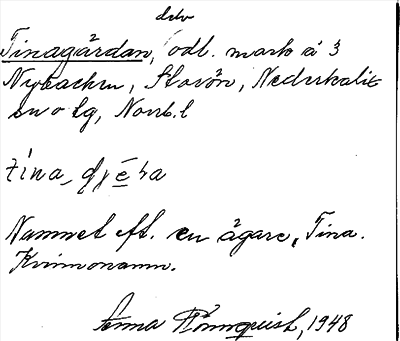 dito
Tinagärdan, odl. mark å 3
Nybacken, Storön, Nederkalix
sn o lg, Norrb.l
tína
Namnet eft. en ägare, Tina.
Kvinnonamn.
Anna Rönnquist, 1948